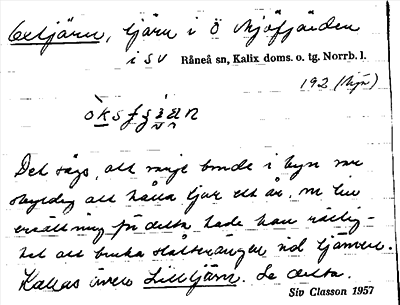 Oxtjärn, tjärn i Ö Högfjärden
i SV Råneå sn, Kalix doms. o. tg. Norrb. l.
192 (byn)
Det sägs, att varje bonde i byn var
skyldig att hålla tjur ett år, som
ersättning för detta hade han rättig-
het att bruka slåtterängen vid tjärnen.
Kallas även Lilltjärn. Se detta.
Siv Classon 1957